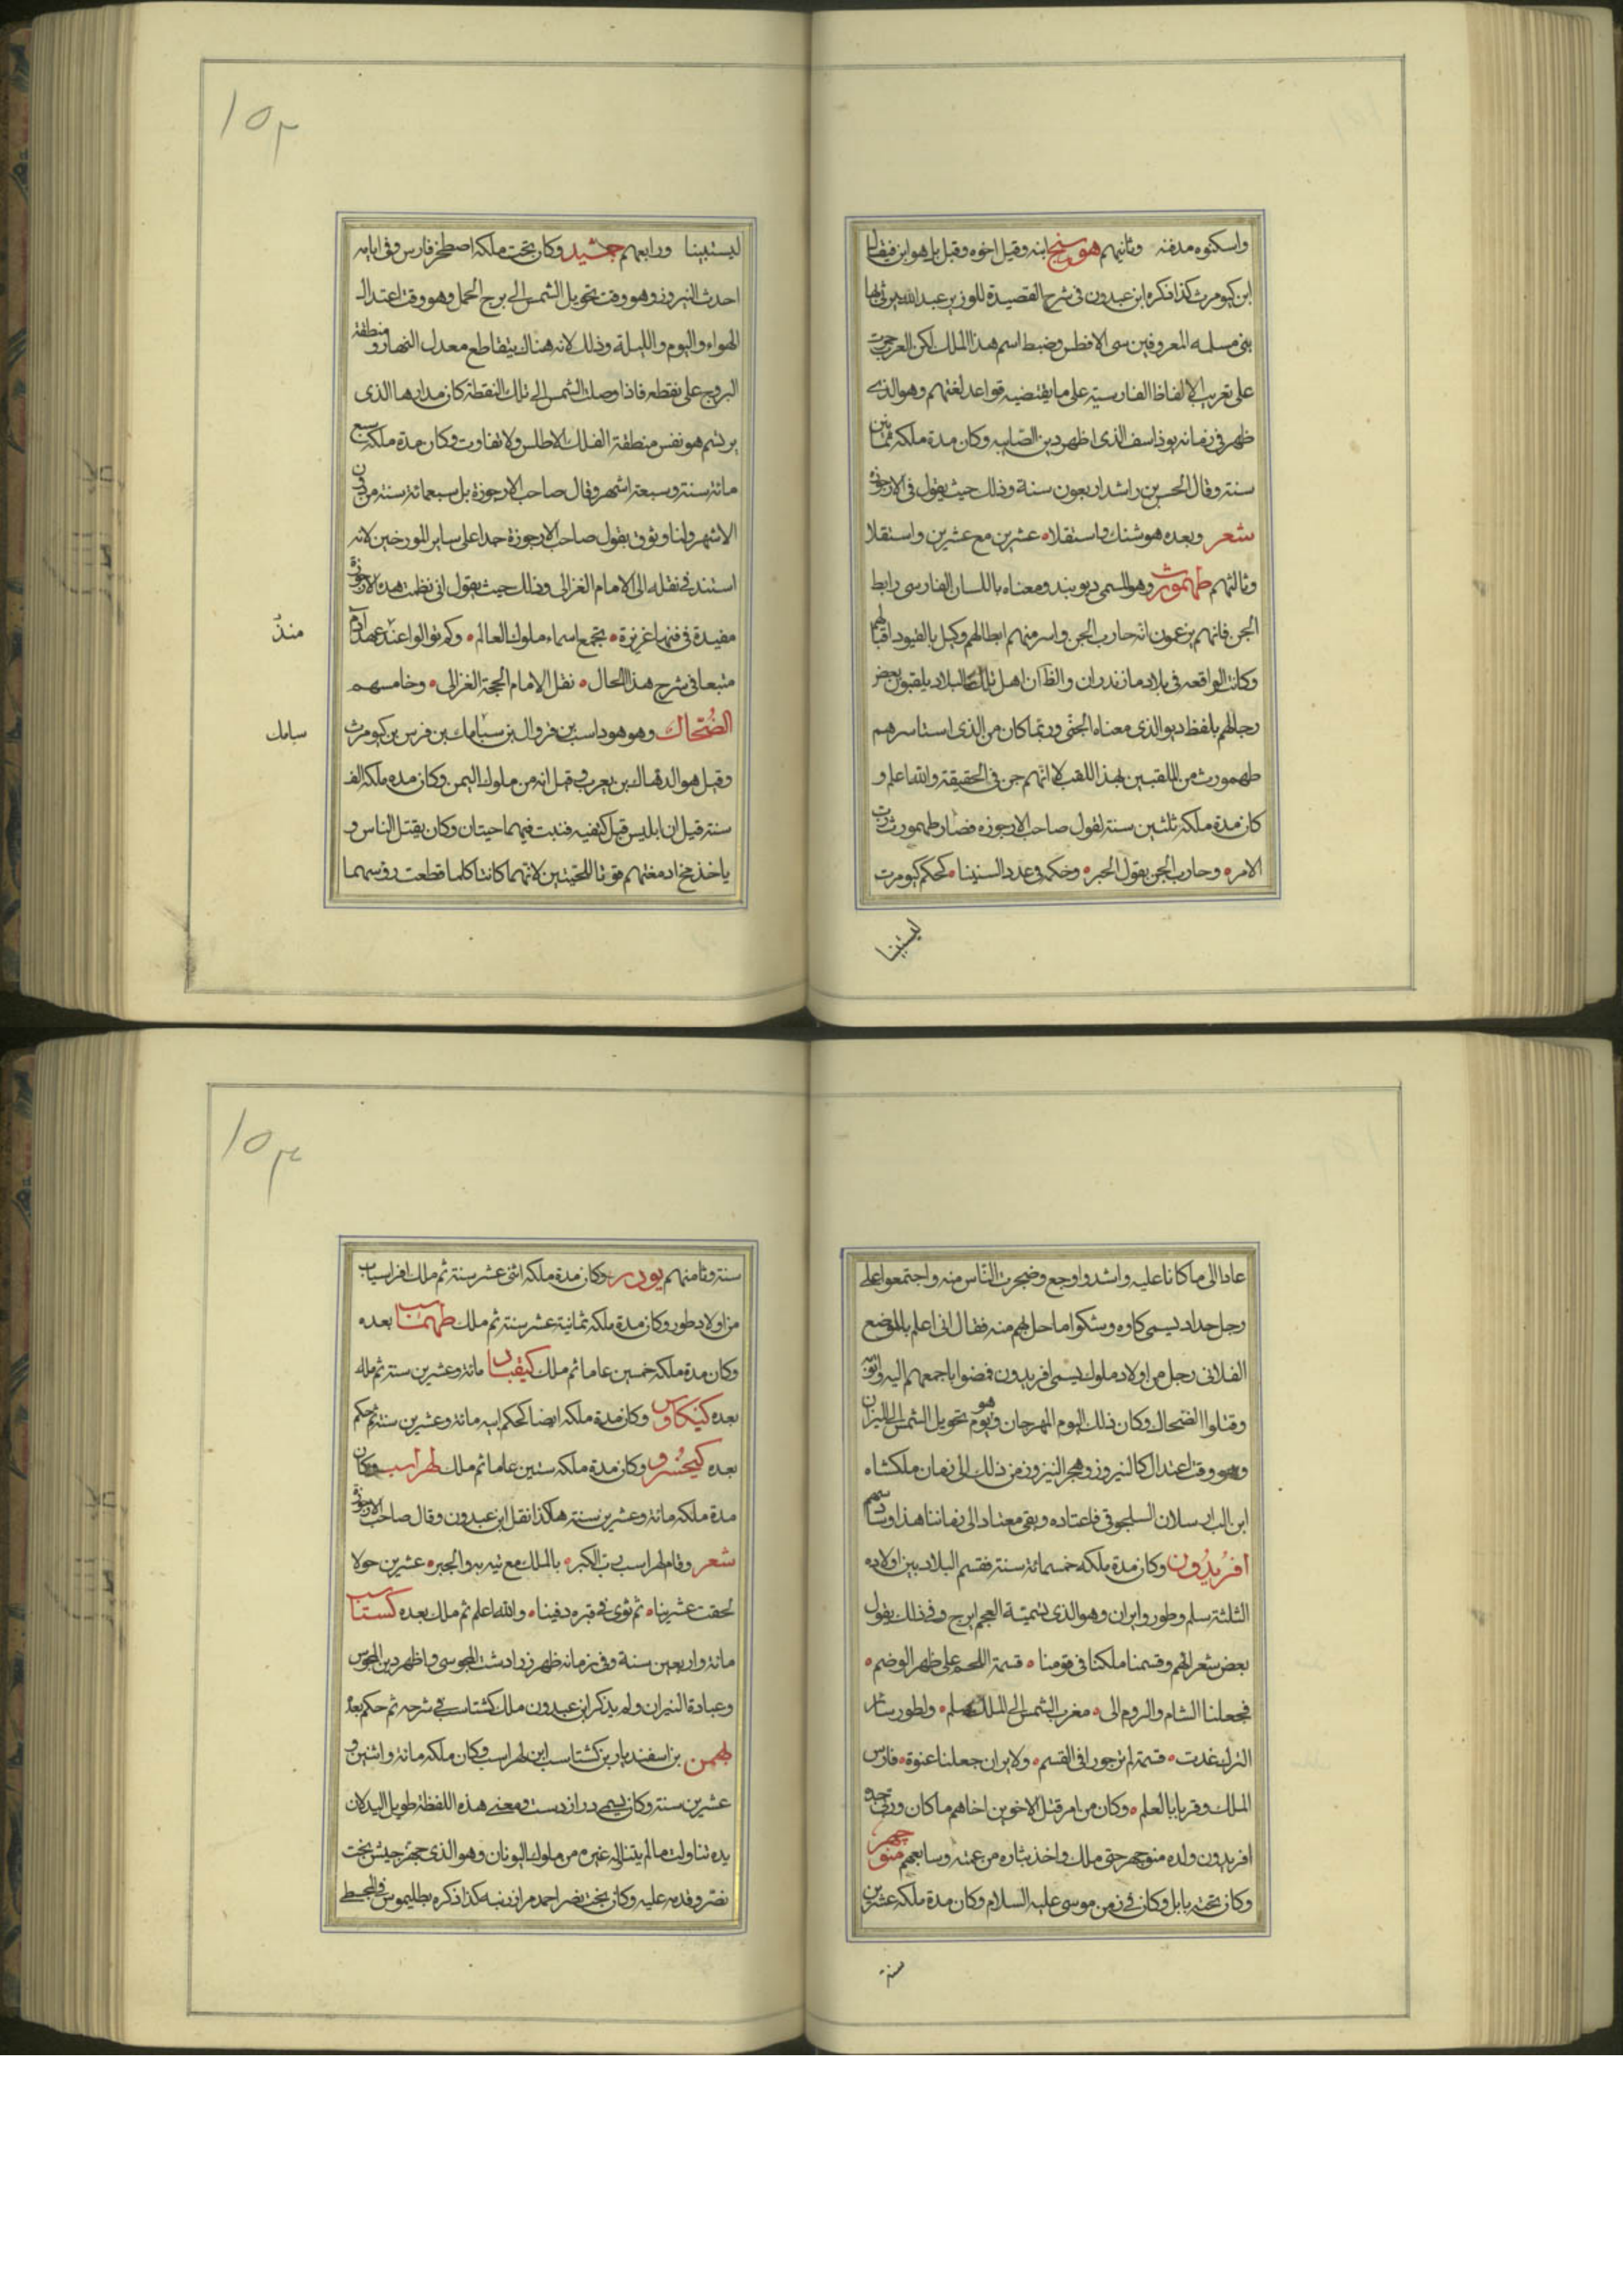 واسكنوه مدفنه وثانيهم هوشنج ابنه وقيل اخوه وقيل بل هو ابن
ابن كيومرث كذا ذكره ابن عبدون فى شرح القصيدة للوزير عبد الله
بنى مسلمه المعروفين ببنى الافطس وضبط اسم هذا الملك لكن العرب جرت
على تعريب الالفاظ الفارسية على ما يقتضيه قواعد لغتهم وهو الذى
ظهر فى زمانه بوذاسف الذى اظهر دين الصابيه وكان مدة ملكه ثمانين
سنة وقال الحسن بن راشد اربعون سنة وذلك حيث يقول فى الارجوزة
شعر وبعده هوشنك واستقلا عشرين مع عشرين واستقلا
وثالثهم طهمورث وهو المسمى ديوبند ومعناه باللسان الفارسى رابط
الجن فانهم يزعمون انه حارب الجن واسر منهم ابطالهم وكبل بالقيود اقيالهم
وكانت الواقعه فى بلاد مازندران والظاهر ان اهل تلك البلاد يلقبون بعض
رجالهم بلفظ ديو الذى معناه الجنى وربما كان من الذى استاسرهم
طهمورث من الملقبين بهذا اللقب لا انهم جن فى الحقيقة والله اعلم و
كان مدة ملكه ثلثين سنة لقول صاحب الارجوزه فصار طهمورث رب
الامر وحارب الجن بقول الحبر وحكمه فى عدد السنينا كحكم كيومرث
ليستبينا
١٥٢
ليستبينا ورابعهم جمشيد وكان تخت ملكه اصطخر فارس وفى ايامه
احدث النيروز وهو وقت تحويل الشمس الى برج الحمل وهو وقت اعتدال
الهواء واليوم والليلة وذلك لانه هناك يتقاطع معدل النهار ومنطقة
البروج على نقطه فاذا وصلت الشمس الى تلك النقطة كان مدارها الذى
يرتسم هو نفس منطقة الفلك الاطلس ولا تفاوت وكان مدة ملكه سبع
مائة سنة وسبعة اشهر وقال صاحب الارجوزة بل سبعمائة سنة من دون
الاشهر وانا وثوق بقول صاحب الارجوزة حمدا على ساير المورخين لانه
استند فى نقله الى الامام الغزالى وذلك حيث يقول انى نظمت هذه الارجوزة
مفيدة فى فنها غزيزة تجمع اسماء ملوك العالم وكم توالوا عند عهد آدم
منذ
متبعا فى شرح هذا الحال نقل الامام الحجة الغزالى وخامسهم
الضحاك وهو هوداسب بن فروال بن سيامك بن فرس بن كيومرث
سيامك
وقيل هو الدهاك بن يعرب وقيل انه من ملوك اليمن وكان مده ملكه الف
سنة قيل ان ابليس قبل كتفيه فنبت فيهما حيتان وكان يقتل الناس و
ياخذ مخ ادمغتهم قوتا للحيتين لانهما كانتا كلما قطعت روسهما
عادا الى ما كانا عليه واشد واوجع وضجرت الناس منه واجتمعوا على
رجل حداد يسمى كاوه وشكوا ما حل بهم منه فقال انى اعلم بالموضع
الفلانى رجل من اولاد ملوك يسمى افريدون فمضوا باجمعهم اليه واتوه
وقتلوا الضحاك وكان ذلك اليوم المهرجان وهو يوم تحويل الشمس الى الميزان
وهو وقت اعتدال كالنيروز وهجر النيروز من ذلك الى زمان ملكشاه
ابن الب ارسلان السلجوقى فاعتاده وبقى معتادا الى زماننا هذا وسادسهم
افريدون وكان مدة ملكه خمسمائة سنة فقسم البلاد بين اولاده
الثلثة سلم وطور وايران وهو الذى تسميه العجم ايرج وفى ذلك يقول
بعض شعرائهم وقسمنا ملكنا فى قومنا قسمة اللحم على ظهر الوضم
فجعلنا الشام والروم الى مغرب الشمس الى الملك سلم ولطور ساير
الترك غدت قسمة لم نر جورا فى القسم ولايران جعلنا عنوة فارس
الملك وقربا بالعلم وكان من امر قتل الاخوين اخاهم ما كان وربى جده
افريدون ولده منوجهر حتى ملك واخذ بثاره من عمته وسابعهم منوجهر
وكان تخته بابل وكان فى زمن موسى عليه السلام وكان مدة ملكه عشرين
سنة
١٥٣
سنة وثامنهم يودر وكان مدة ملكه اثنى عشر سنة ثم ملك افراسياب
من اولاد طور وكان مدة ملكه ثمانية عشر سنة ثم ملك طهماسب بعده
وكان مدة ملكه خمسين عاما ثم ملك كيقباد مائة وعشرين سنة ثم ملك
بعده كيكاوس وكان مدة ملكه ايضا كحكم ابيه مائة وعشرين سنة ثم حكم
بعده كيخسرو وكان مدة ملكه ستين عاما ثم ملك لهراسب وكان
مدة ملكه مائة وعشرين سنة هكذا نقل ابن عبدون وقال صاحب الارجوزة
شعر وقام لهراسب رب الكبر بالملك مع تيه به والجبر عشرين حولا
لحقت عشرينا ثم ثوى فى قبره دفينا والله اعلم ثم ملك بعده كستاسب
مائة واربعين سنة وفى زمانه ظهر زرادشت المجوسى واظهر دين المجوس
وعبادة النيران ولم يذكر ابن عبدون ملك كشتاسب فى شرحه ثم حكم بعده
بهمن بن اسفنديار بن كشتاسب ابن لهراسب وكان ملكه مائة واثنين و
عشرين سنة وكان يسمى دراز دست ومعنى هذه اللفظة طويل اليد لان
يده تناولت ما لم يتناله غيره من ملوك اليونان وهو الذى جهز جيش بخت
نصر وقدمه عليه وكان بخت نصر احد مرازبته كذا ذكره بطليموس فى المجسطى